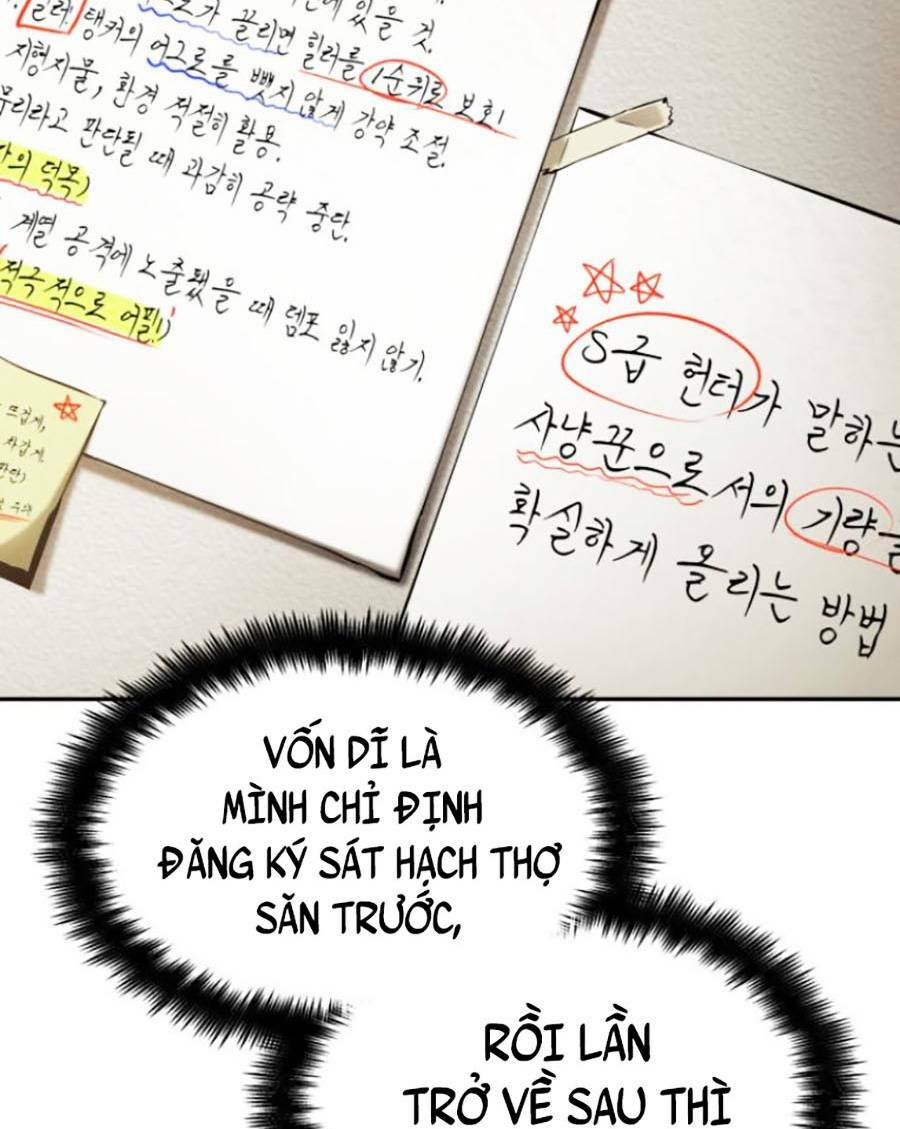 있을 것.
가 끌리면 힐러를 1순위로 보호!
힐러, 탱커의 어그로를 뺏지 않게 강약 조절.
지형지물, 환경 적절히 활용.
무리라고 판단될 때 과감히 공략 중단.
의 덕목)
계열 공격에 노출됐을 때 템포 잃지 않기.
적극적으로 어필!)
뜨겁게,
차갑게.
판단)
S급 헌터가 말하는
사냥꾼으로서의 기량을
확실하게 올리는 방법
VỐN DĨ LÀ
MÌNH CHỈ ĐỊNH
ĐĂNG KÝ SÁT HẠCH THỢ
SĂN TRƯỚC,
RỒI LẦN
TRỞ VỀ SAU THÌ